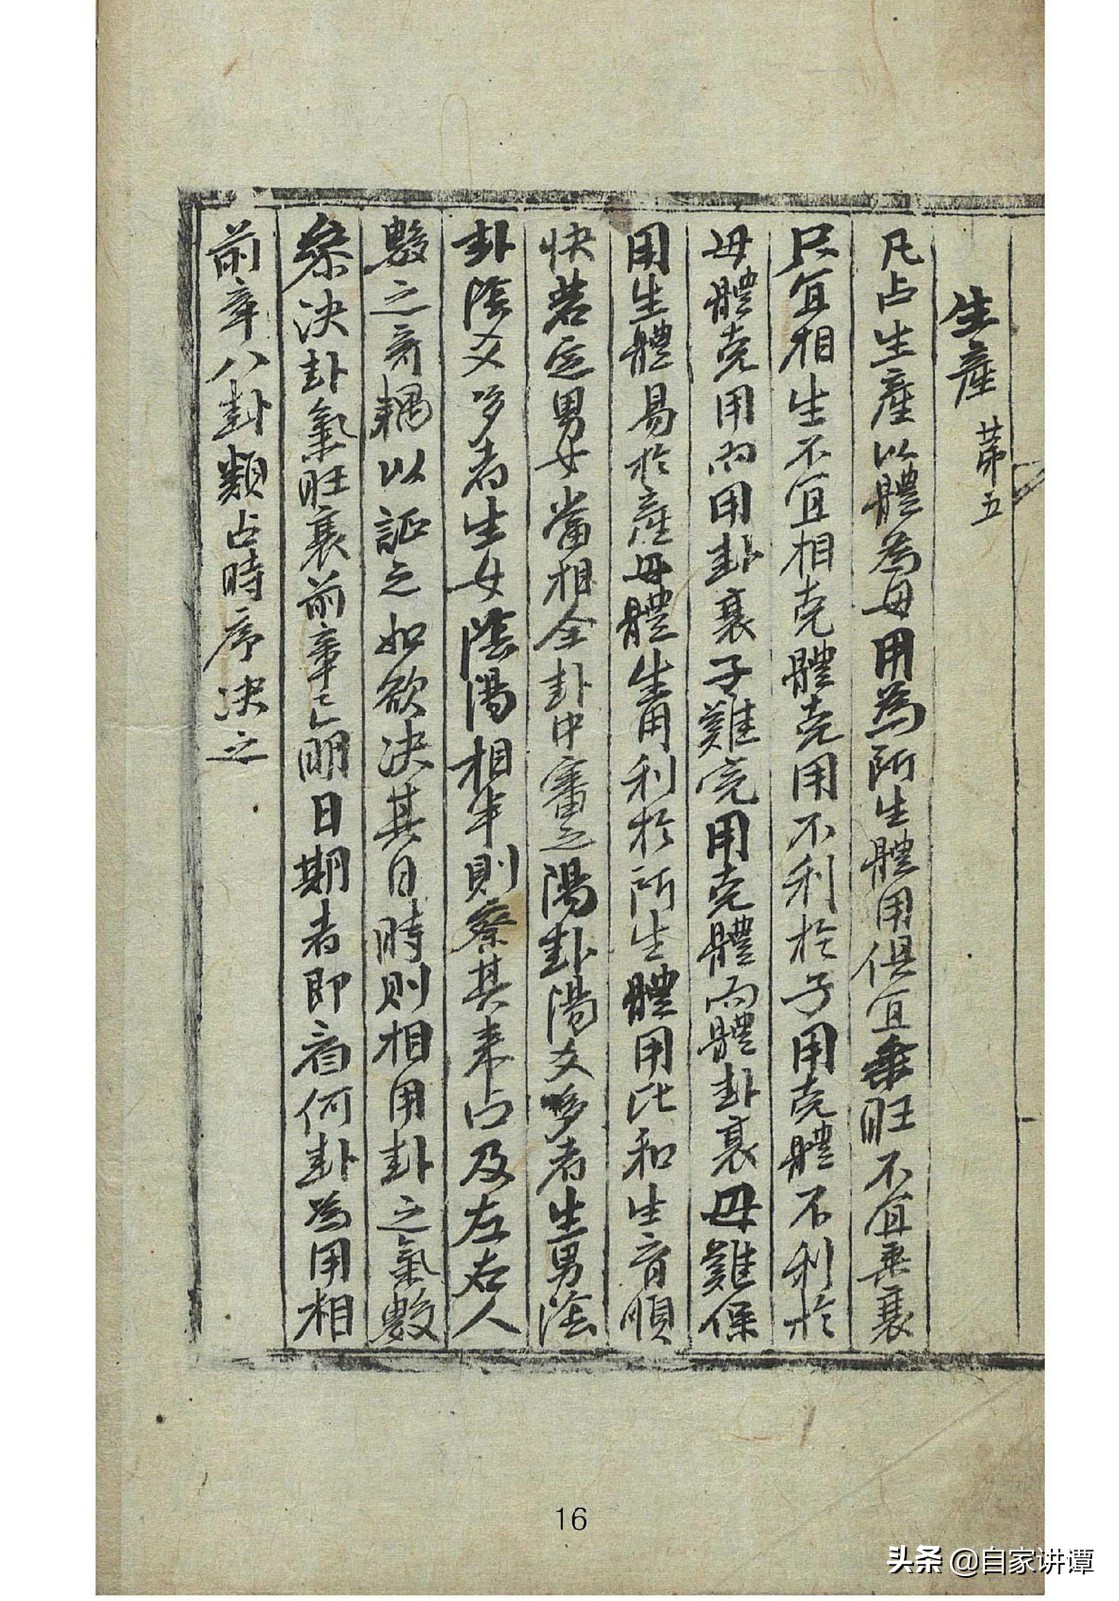 生產 第五
凡占生產以體為母用為所生體用俱宜乘旺不宜乘衰
只宜相生不宜相克體克用不利於子用克體不利於
母體克用而用卦衰子難完用克體而體卦衰母難保
用生體易於產母體生用利於所生體用比和生育順
快若定男女當相全卦中審之陽卦陽爻多者生男陰
卦陰爻多者生女陰陽相半則察其來占及左右人
數之奇耦以証之如欲决其日時則相用卦之氣數
叅决卦氣旺衰前章已明日期者即看何卦為用相
前章八卦類占時序决之
16
头条 @自家讲谭